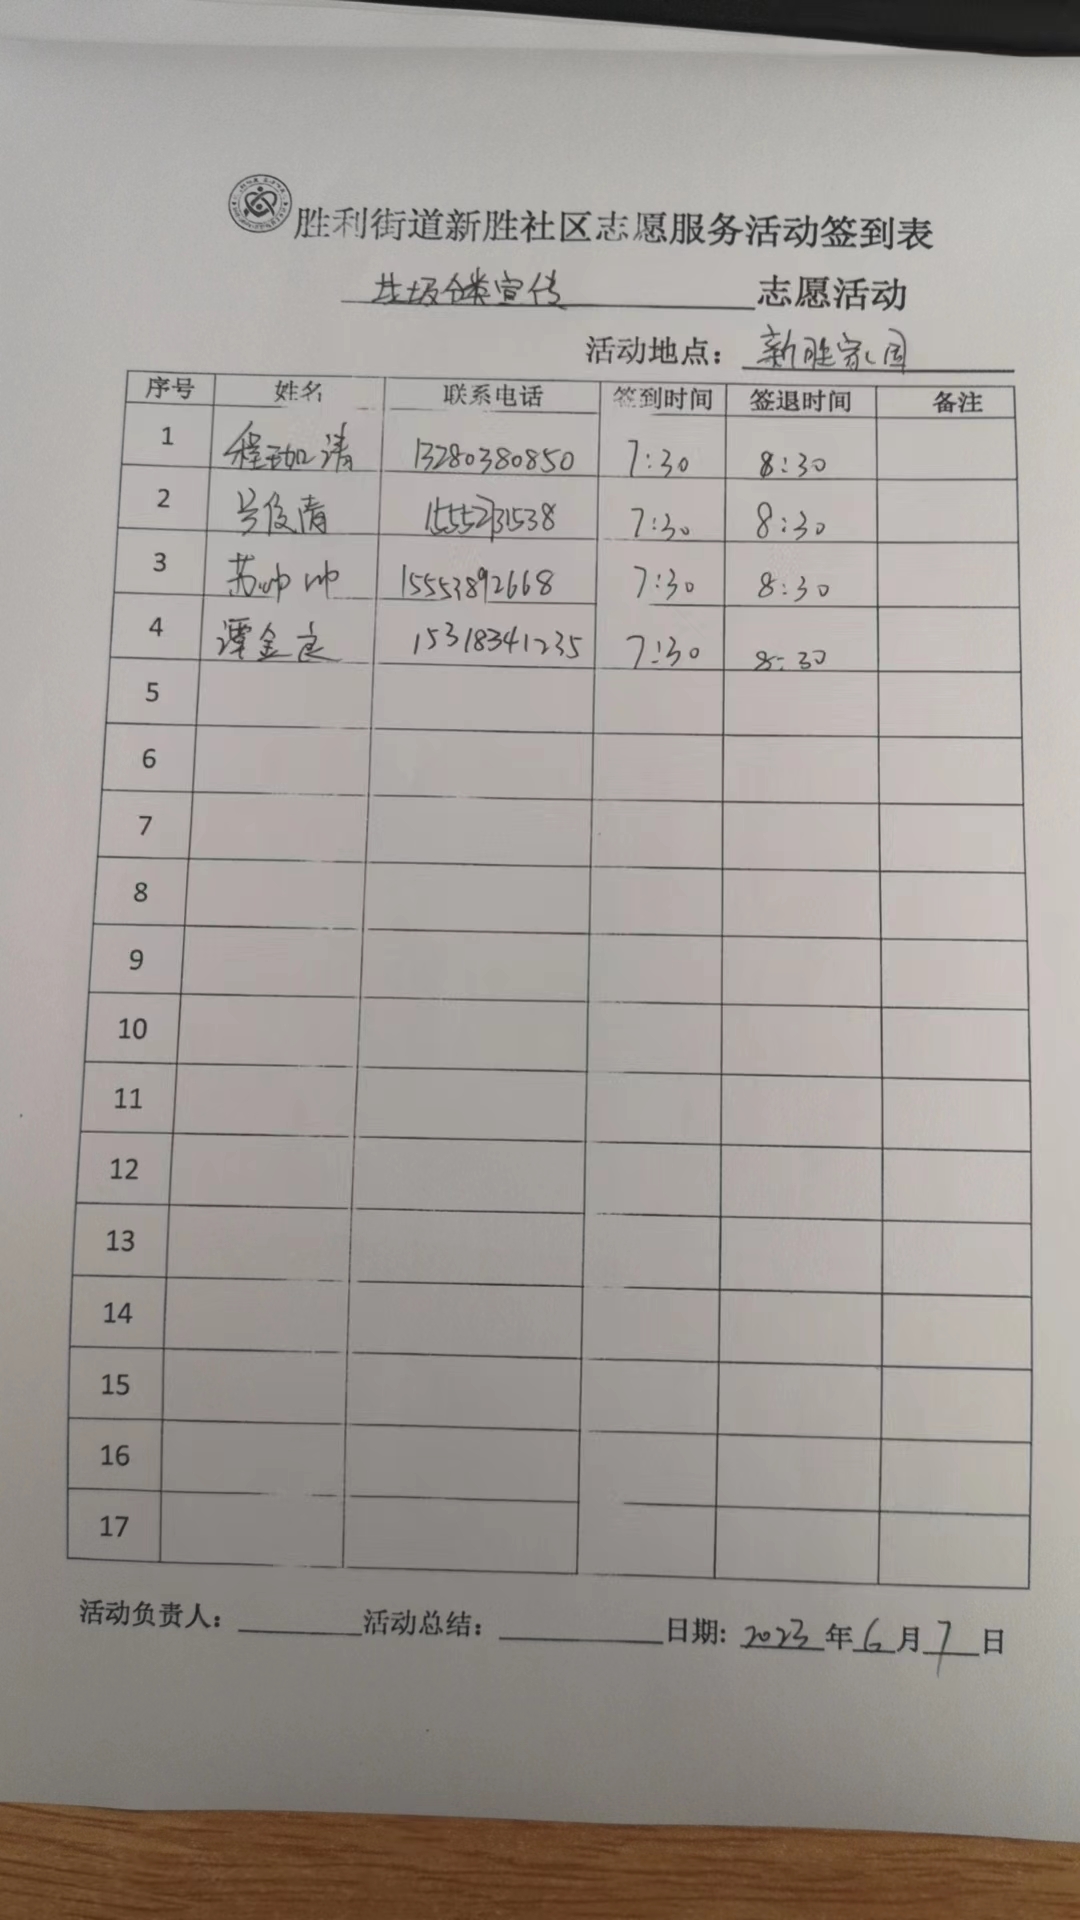 胜利街道新胜社区志愿服务活动签到表
垃圾分类宣传 志愿活动
活动地点：新胜家园
序号 姓名 联系电话 签到时间 签退时间 备注
1 程 清 13280380850 7:30 8:30
2 俊清 15552731538 7:30 8:30
3 苏帅帅 15553892668 7:30 8:30
4 谭金良 15318341235 7:30 8:30
5
6
7
8
9
10
11
12
13
14
15
16
17
活动负责人： 活动总结： 日期: 2023年6月7日